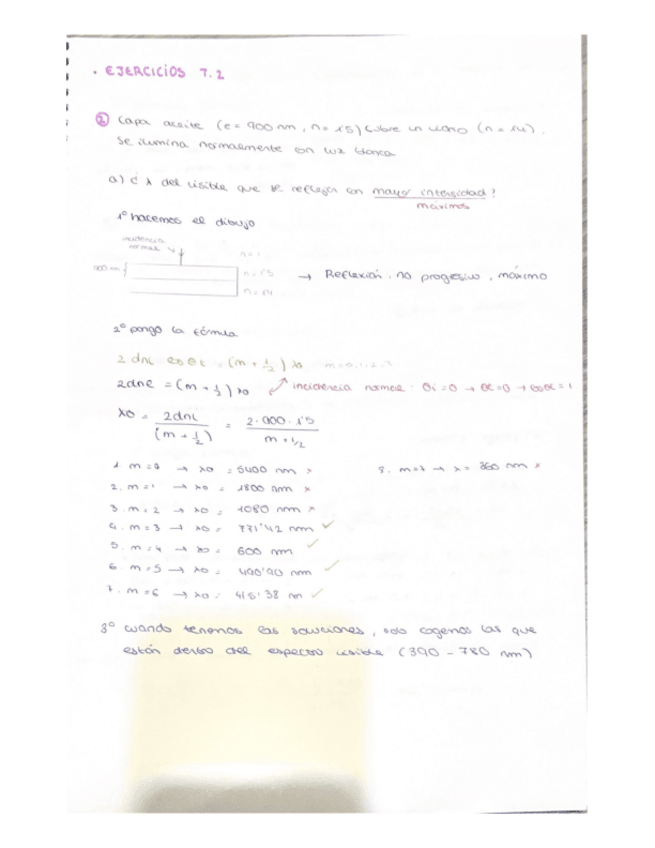 • EJERCICIOS 7.2
② Capa aceite (e = 900 nm, n = 1'5) cubre un vidrio (n = 1'4).
Se ilumina normalmente con luz blanca
a) ¿ λ del visible que se reflejan con mayor intensidad?
máximos
1º hacemos el dibujo
incidencia
normal
n = 1
900 nm
n = 1'5
n = 1'4
→ Reflexión, no progresivo, máximo
2º pongo la fórmula
2 dnL cos θt = (m + 1/2) λo m = 0, 1, 2, 3
2dnL = (m + 1/2) λo incidencia normal: θi = 0 → θt = 0 → cosθt = 1
λo = 2dnL / (m + 1/2) = 2 · 900 · 1'5 / m + 1/2
1. m = 0 → λo = 5400 nm ×
2. m = 1 → λo = 1800 nm ×
3. m = 2 → λo = 1080 nm ×
4. m = 3 → λo = 771'42 nm ✓
5. m = 4 → λo = 600 nm ✓
6. m = 5 → λo = 490'90 nm ✓
7. m = 6 → λo = 415'38 nm ✓
8. m = 7 → λ = 360 nm ×
3º cuando tenemos las soluciones, solo cogemos las que
están dentro del espectro visible (390 - 780 nm)